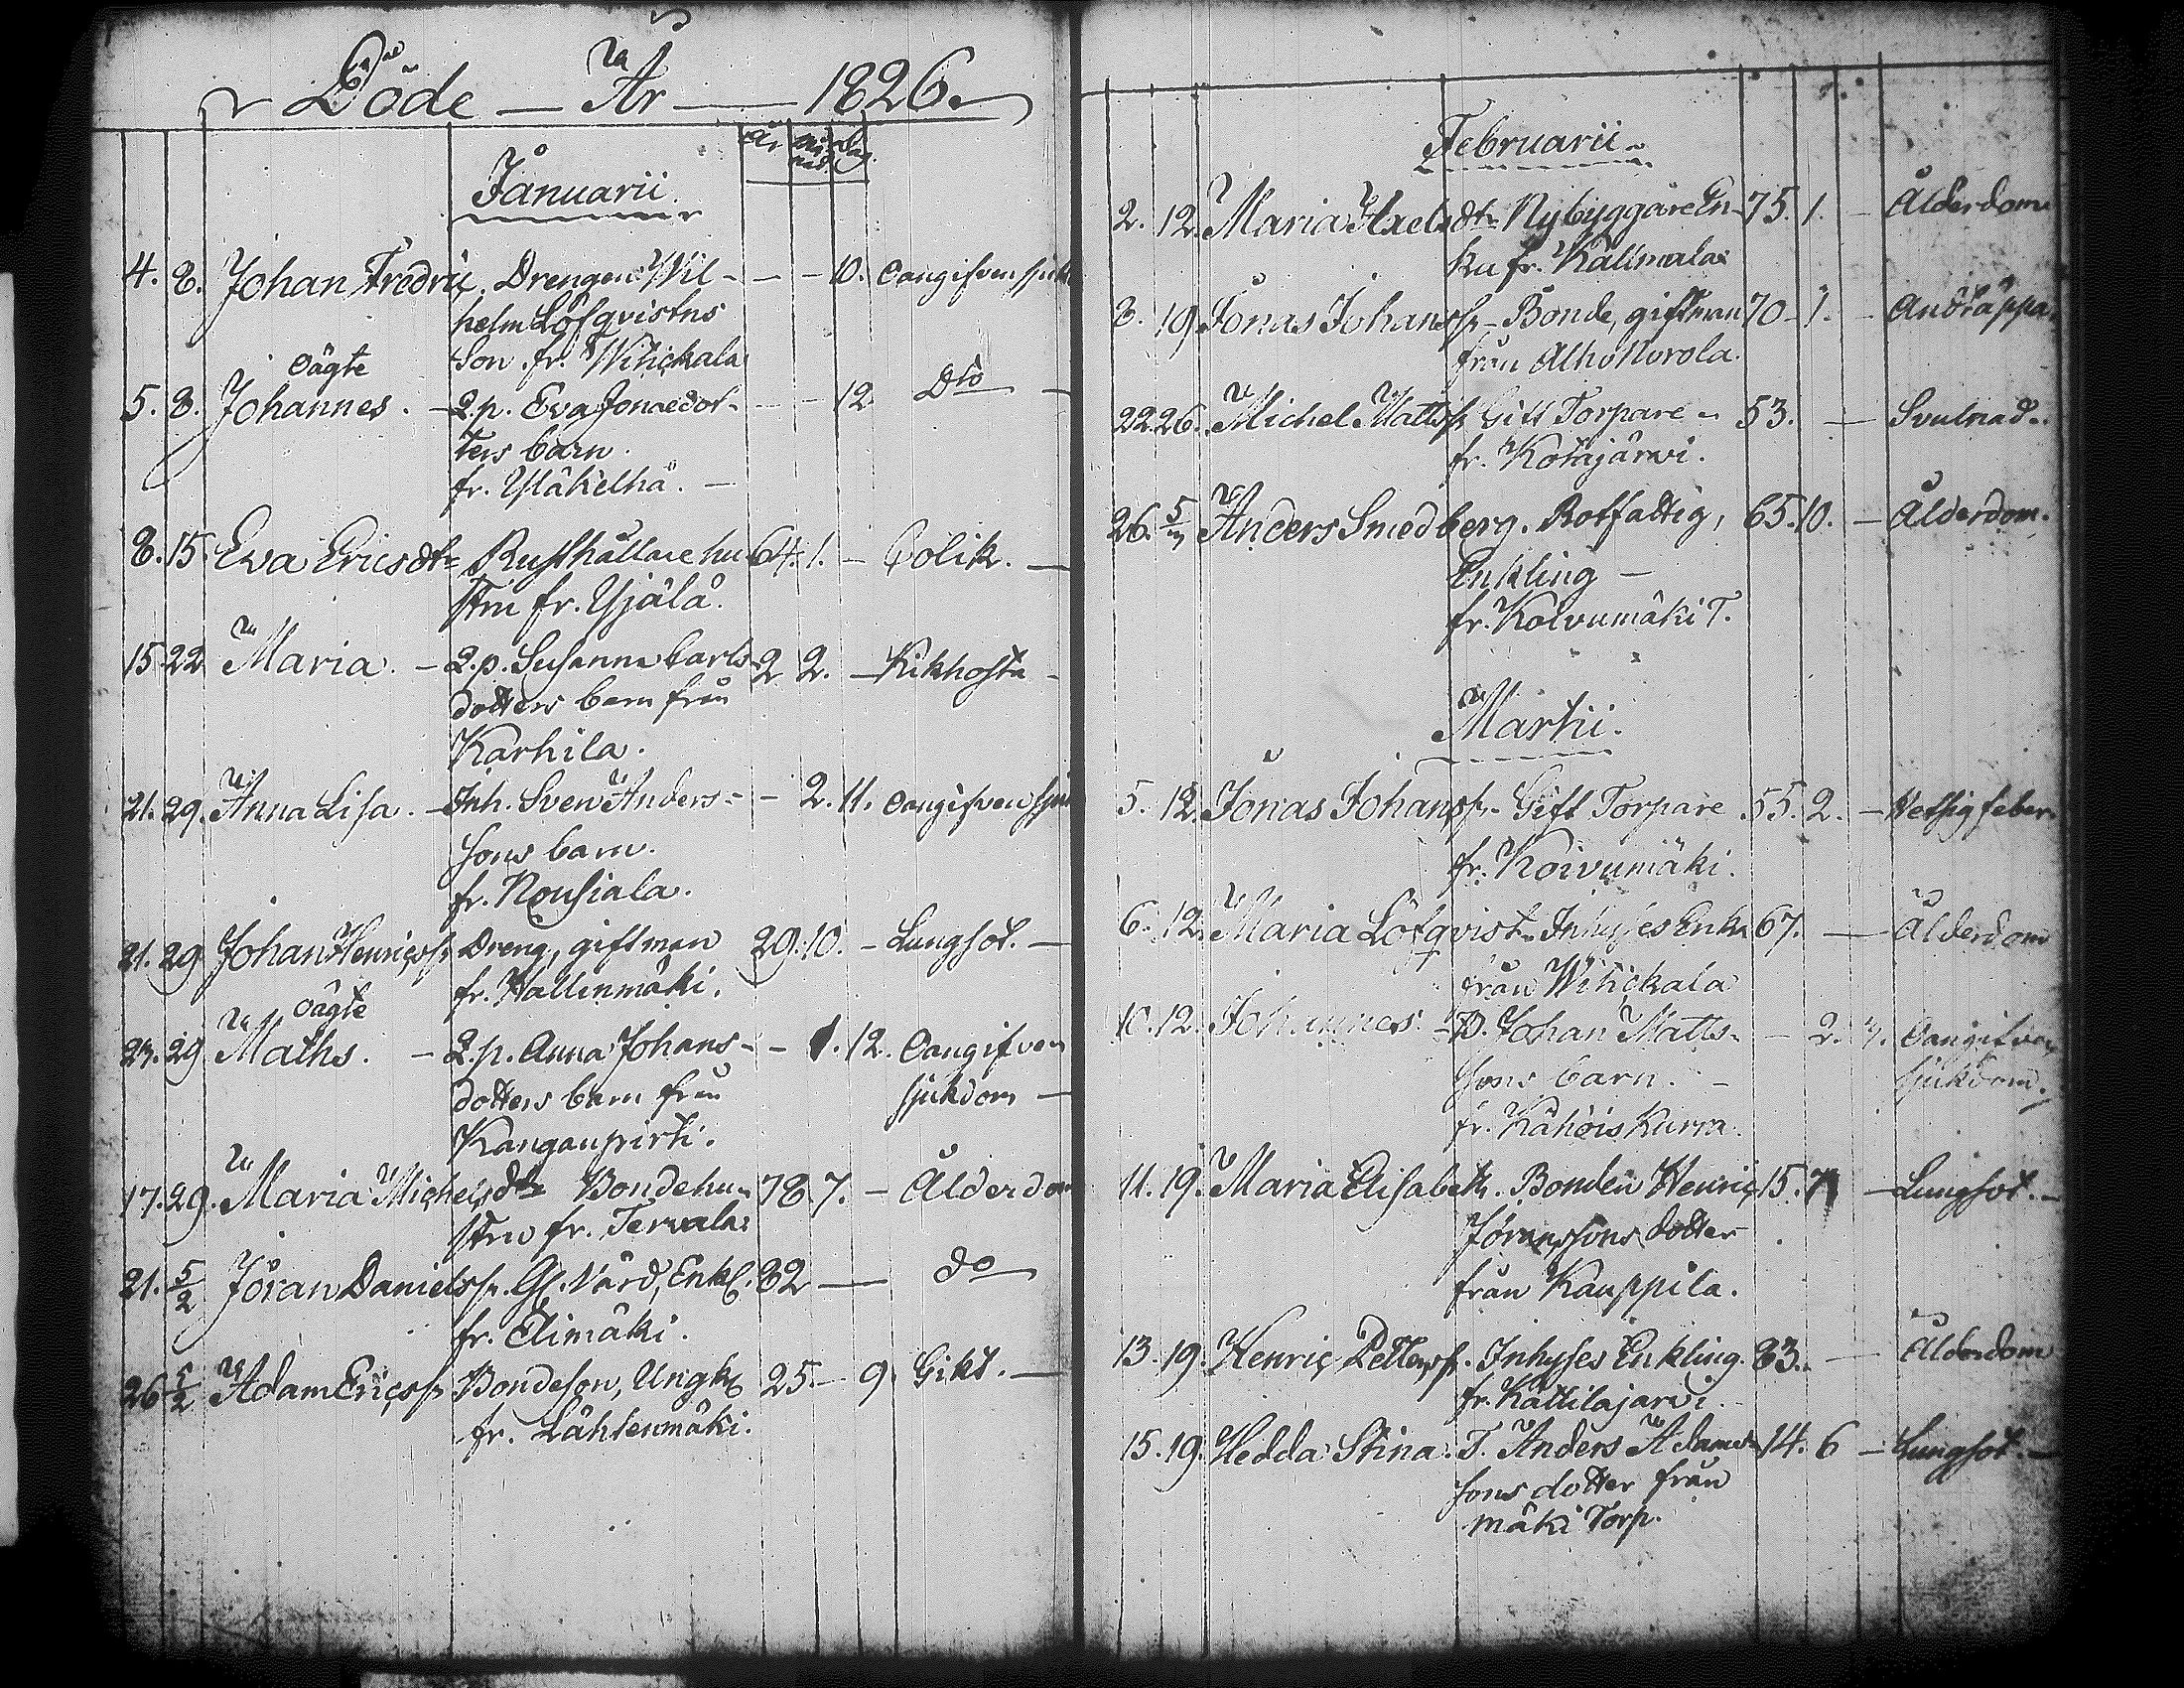 Döde — År — 1826.
år. må nad. dag.
Januarii.
4. 8. Johan Fredric. Drengen Wil- — — 10. Oangifven sjuk
helm Löfqvistns
Son fr. Wihickala
oägte
5. 8. Johannes. — Q.p. Eva Jonædot- — — 12 Dto —
ters barn.
fr. Yläkelhä. —
8. 15. Eva Ericsdtr Rusthållare hu- 64. 1. — Colik. —
stru fr. Yjälä.
15. 22 Maria. — Q.p. Susanna Carls- 2 2. — Kikhosta —
dotters barn från
Karhila.
21. 29. Anna Lisa. — Inh. Sven Anders- — 2. 11. Oangifven sju
sons barn.
fr. Nousiala.
21. 29 Johan Henricss. Dreng, giftman 29. 10. — Lungsot. —
fr. Hallinmäki.
oägte
23. 29 Maths. — Q.p. Anna Johans- — 1. 12. Oangifven
dotters barn från sjukdom —
Kanganpirti.
17. 29. Maria Michelsdtr Bondehu- 78 7. — Ålderdom
stru fr. Tervala
21. 5/2 Jöran Danielss. Gl. Värd, Enkl. 82 — do
fr. Elimäki.
26 5/2 Adam Ericss. Bondeson, Ungk. 25. — 9. Gikt. —
fr. Lähtenmäki.
Februarii
2. 12. Maria Axelsdtr Nybyggare En- 75. 1. — Ålderdom
ka fr. Kallmala
8. 19. Jonas Johanss. — Bonde, giftman 70 — 1. — Andtäppa
från Alho Norola.
22. 26. Michel Mattss. Gift Torpare 53. — Svulnad.
fr. Kotajärvi.
26. 5/m Anders Smedberg. Rotfattig, 65. 10. — Ålderdom.
Enkling —
fr. Koivumäki T.
Martii.
5. 12. Jonas Johanss. Gift Torpare 55. 2. — Hetsig feber.
fr. Koivumäki.
6. 12. Maria Löfqvist. Inhyses Enka 67. — Ålderdom
från Wihickala
10. 12. Johannes. — B. Johan Matts- — 2. 3. Oangifven
sons barn. — sjukdom.
fr. Kähöis Kurra.
11. 19. Maria Elisabeth. Bonden Henric 15. 7 — Lungsot. —
Jöranssons dotter
från Kauppila.
13. 19. Henric Petterss. Inhyses Enkling. 83. — Ålderdom
fr. Kattilajarvi.
15. 19. Hedda Stina. T. Anders Adams- 14. 6 — Lungsot. —
sons dotter från
mäki Torp.